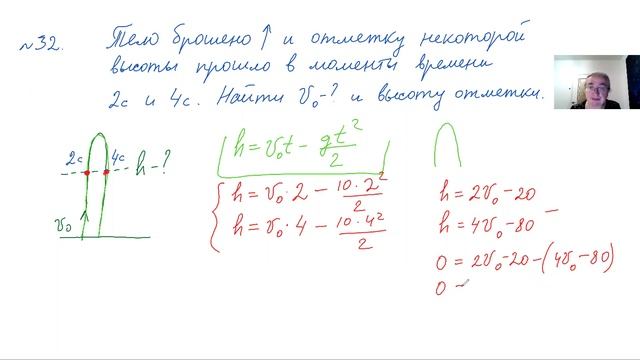 №32. Тело брошено ↑ и отметку некоторой
высоты прошло в моменты времени
2с и 4с. Найти v₀-? и высоту отметки.
2с 4с h-?
v₀
h = v₀t - gt²/2
h = v₀·2 - 10·2²/2
h = v₀·4 - 10·4²/2
h = 2v₀ - 20
h = 4v₀ - 80 -
0 = 2v₀ - 20 - (4v₀ - 80)
0 -